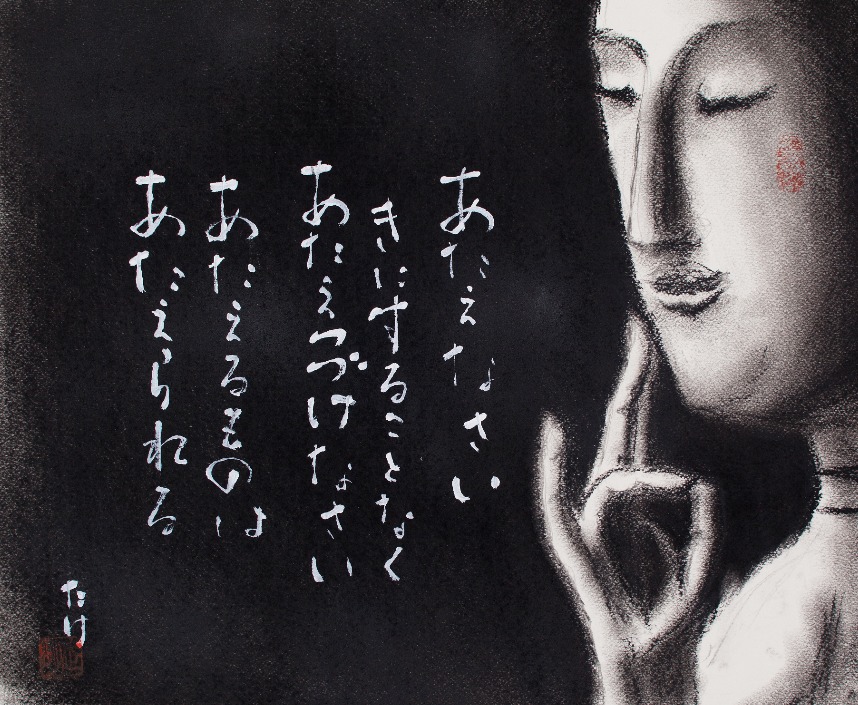 あたえなさい
きにすることなく
あたえつづけなさい
あたえるものは
あたえられる
たけ